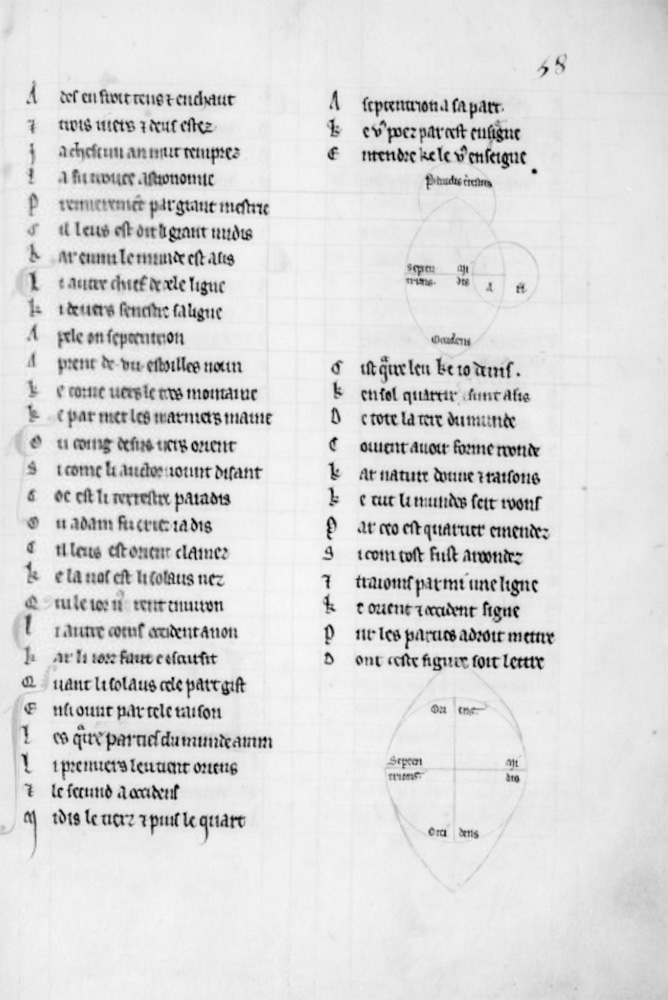 58
A des en froit tens ⁊ en chaut
⁊ trois uiers ⁊ deus estez
J a chescun an mut temprez
I a fu trouee astronomie
P remieremēt par grant mestrie
C il leus est dit li grant midis
k ar enmi le munde est asis
L i autre chief de cele ligne
k i deuers senestre saligne
A pele on septentrion
A prent de .vii. estoilles noun
k e torne uers le tres montaine
k e par mer les mariniers maine
O u coing desus uers orient
S i come li auctor uount disant
C oe est li terrestre paradis
O u adam fu criez iadis
C il leus est orient clamez
k e la nos est li solaus nez
Q ui le ior nꝰ rent enuiron
L i autre coins occident a non
k ar li iorz faut e escurist
Q uant li solaus cele part gist
E nsi ount par tele raison
L es qͣtre parties du munde a nun
L i premiers leu tient oriens
⁊ le secund a occidens
M idis le tierz ⁊ puis le quart
A septentrion a sa part
k e vꝰ poez par cest ensigne
E ntendre ke le vꝰ enseigne
Paradis terrestris
Septen trions
Mi dis
A
Occidens
C ist qͣtre leu ke io deuis.
k en sol quartir sunt asis
D e tote la tere du munde
C ouient auoir forme ronde
k ar nature donne ⁊ raisons
k e tut li mundes seit roons
P ar ceo est quartier entendez
S i com tost fust arondez
⁊ traioms parmi une ligne
k e orient ⁊ occident signe
P ur les parties adroit mettre
D ont ceste figure soit lettre
Ori ens
Septen trions
Mi dis
Occi dens